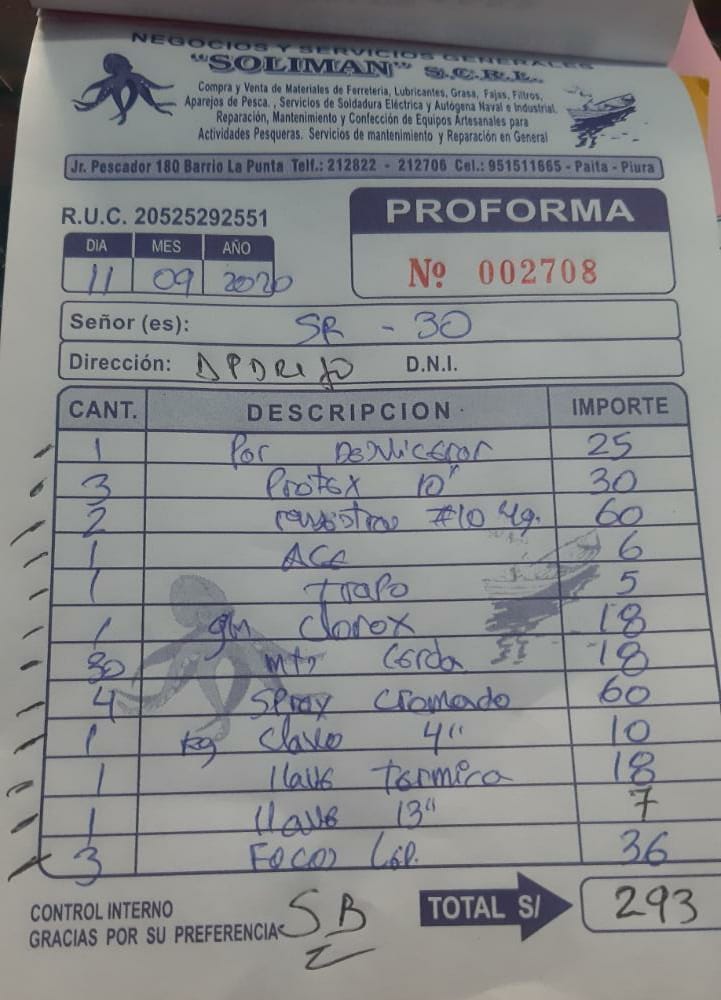 NEGOCIOS Y SERVICIOS GENERALES
"SOLIMAN" S.C.R.L.
Compra y Venta de Materiales de Ferretería, Lubricantes, Grasa, Fajas, Filtros,
Aparejos de Pesca. , Servicios de Soldadura Eléctrica y Autógena Naval e Industrial.
Reparación, Mantenimiento y Confección de Equipos Artesanales para
Actividades Pesqueras. Servicios de mantenimiento y Reparación en General
Jr. Pescador 180 Barrio La Punta Telf.: 212822 - 212706 Cel.: 951511665 - Paita - Piura
R.U.C. 20525292551
PROFORMA
Nº 002708
DIA MES AÑO
11 09 2020
Señor (es): SR - 30
Dirección: D.N.I.
CANT. DESCRIPCION IMPORTE
1 Por 25
3 Protex 10" 30
2 #10 60
1 6
1 trapo 5
1 gln Clorox 18
30 mtr Cerda 18
4 Spray Cromado 60
1 kg Clavo 4" 10
1 llave termica 18
1 llave 13" 7
3 Focos 36
CONTROL INTERNO
GRACIAS POR SU PREFERENCIA
SB
TOTAL S/ 293